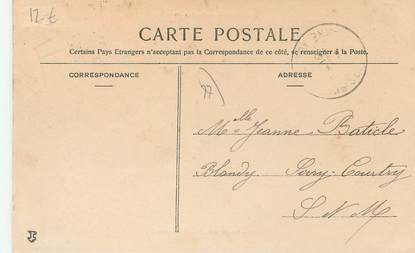 12 €
CARTE POSTALE
Certains Pays Etrangers n'acceptant pas la Correspondance de ce côté, se renseigner à la Poste.
CORRESPONDANCE
ADRESSE
77
Mlle Jeanne Baticle
Blandy Sivry-Courtry
S N M